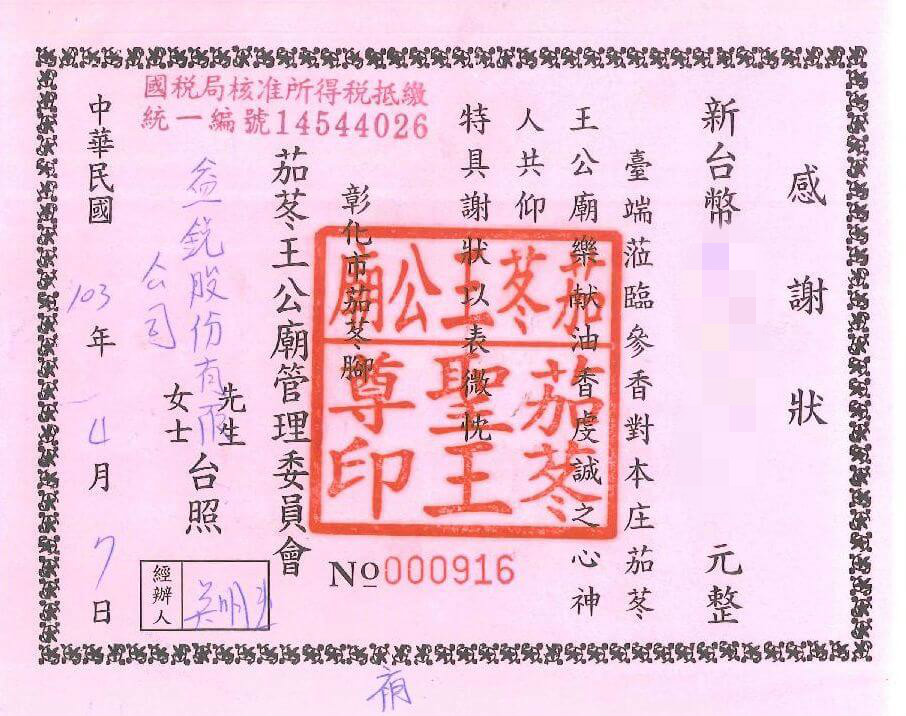 感謝狀
新台幣 元整
臺端蒞臨參香對本庄茄苳
王公廟樂献油香虔誠之心神
人共仰
特具謝狀以表微忱
彰化市茄苳腳
茄苳王公廟管理委員會
益銳股份有限
公司
先生
女士
台照
中華民國103年4月7日
國税局核准所得税抵繳
統一編號14544026
茄苳王公廟
茄苳
聖王
尊印
No000916
經辦人